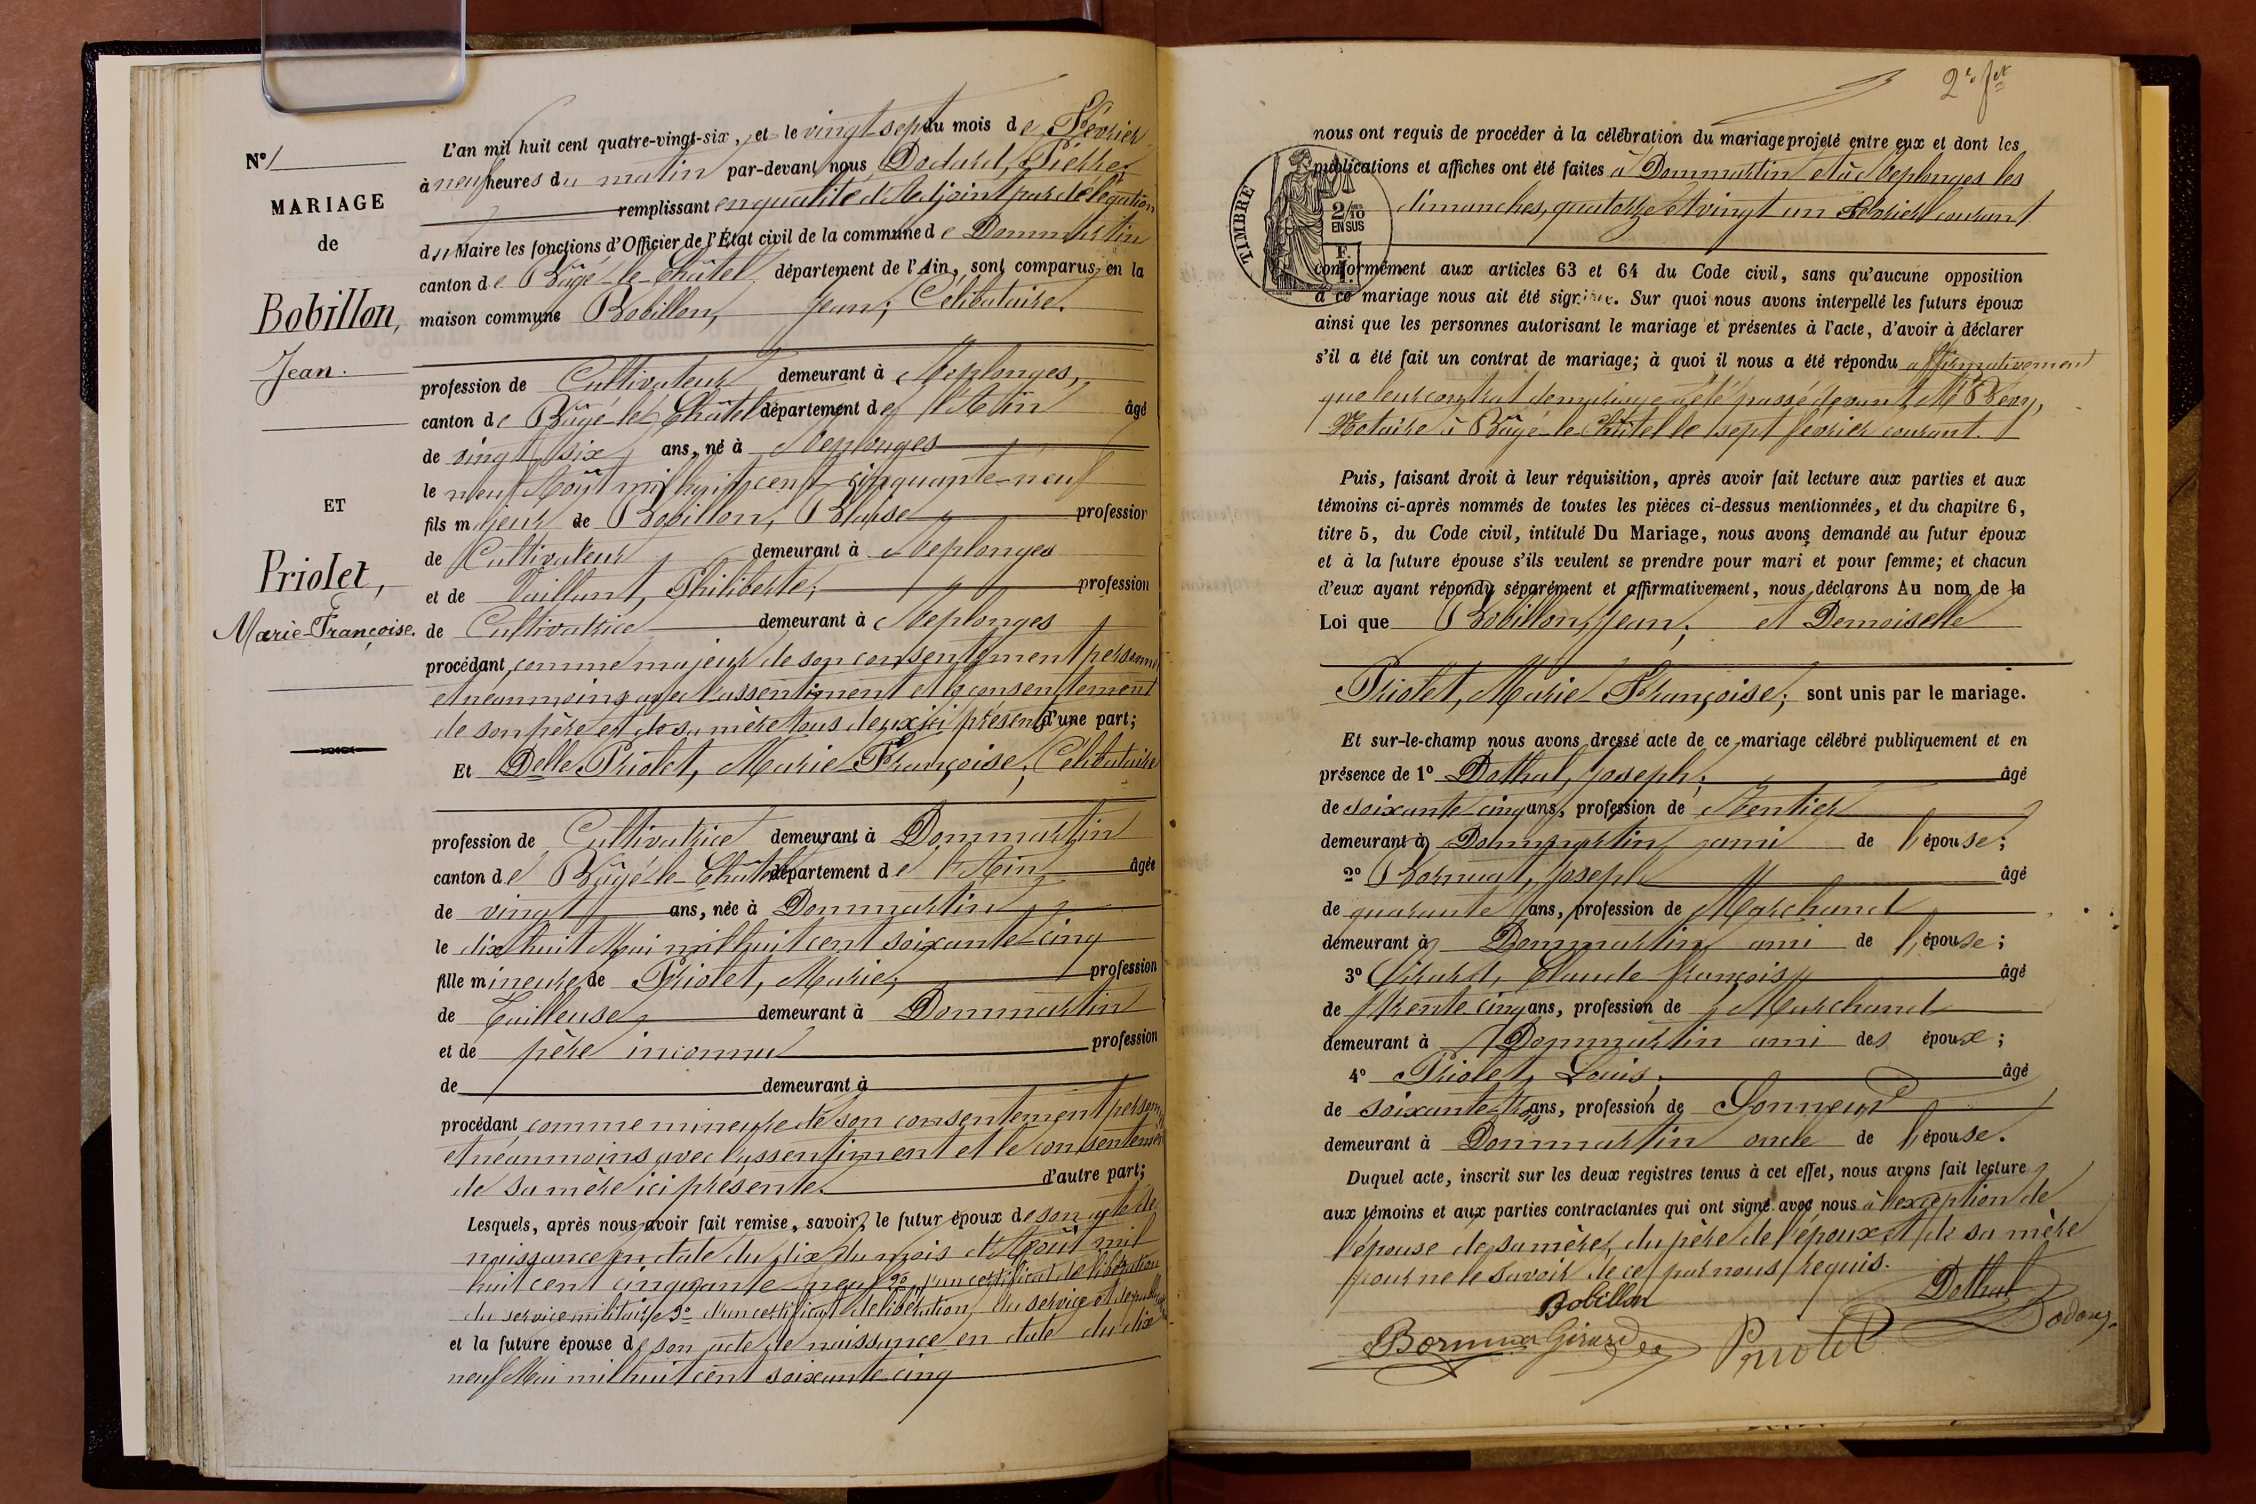 N° 1
MARIAGE
de
Bobillon,
Jean.
ET
Priolet,
Marie-Françoise.
L'an mil huit cent quatre-vingt-six, et le vingt-sept du mois de Février
à neuf heures du matin par-devant nous Dodard, Pierre,
remplissant en qualité d'Adjoint par délégation
du Maire les fonctions d'Officier de l'État civil de la commune de Dommartin
canton de Bâgé-le-Châtel, département de l'Ain, sont comparus en la
maison commune Bobillon, Jean; Célibataire.
profession de Cultivateur demeurant à Replonges,
canton de Bâgé-le-Châtel département de l'Ain âgé
de vingt six ans, né à Replonges
le neuf Août mil huit cent cinquante-neuf
fils majeur de Bobillon, Blaise profession
de Cultivateur demeurant à Replonges
et de Vaillant, Philiberte; profession
de Cultivatrice demeurant à Replonges
procédant comme majeur de son consentement personnel
et néanmoins avec l'assentiment et le consentement
de son père et de sa mère tous deux ici présents d'une part;
Et Delle Priolet, Marie Françoise; Célibataire
profession de Cultivatrice demeurant à Dommartin
canton de Bâgé-le-Châtel département de l'Ain, âgée
de vingt ans, née à Dommartin
le dix huit Mai mil huit cent soixante-cinq
fille mineure de Priolet, Marie, profession
de Tailleuse demeurant à Dommartin
et de père inconnu profession
de demeurant à
procédant comme mineure de son consentement personnel
et néanmoins avec l'assentiment et le consentement
de sa mère ici présente. d'autre part;
Lesquels, après nous avoir fait remise, savoir, le futur époux de son acte de
naissance en date du dix du mois d'Août mil
huit cent cinquante-neuf 2° d'un certificat de libération
du service militaire 3° d'un certificat de libération du service et de
et la future épouse de son acte de naissance en date du dix
neuf Mai mil huit cent soixante cinq
2e fet
nous ont requis de procéder à la célébration du mariage projeté entre eux et dont les
publications et affiches ont été faites à Dommartin et à Replonges les
dimanches, quatorze et vingt un Février courant
TIMBRE
2/10
EN SUS
conformément aux articles 63 et 64 du Code civil, sans qu'aucune opposition
à ce mariage nous ait été signifiée. Sur quoi nous avons interpellé les futurs époux
ainsi que les personnes autorisant le mariage et présentes à l'acte, d'avoir à déclarer
s'il a été fait un contrat de mariage; à quoi il nous a été répondu affirmativement
que leur contrat de mariage a été passé devant Me Révy,
Notaire à Bâgé-le-Châtel le sept février courant.
Puis, faisant droit à leur réquisition, après avoir fait lecture aux parties et aux
témoins ci-après nommés de toutes les pièces ci-dessus mentionnées, et du chapitre 6,
titre 5, du Code civil, intitulé Du Mariage, nous avons demandé au futur époux
et à la future épouse s'ils veulent se prendre pour mari et pour femme; et chacun
d'eux ayant répondu séparément et affirmativement, nous déclarons Au nom de la
Loi que Bobillon, Jean; et Demoiselle
Priolet, Marie Françoise; sont unis par le mariage.
Et sur-le-champ nous avons dressé acte de ce mariage célébré publiquement et en
présence de 1° Dothal, Joseph; âgé
de soixante cinq ans, profession de Rentier
demeurant à Dommartin ami de l'épouse;
2° Bornuat, Joseph âgé
de quarante ans, profession de Marchand
demeurant à Dommartin ami de l'épouse;
3° Girard, Claude françois âgé
de trente cinq ans, profession de Marchand
demeurant à Dommartin ami des époux;
4° Priolet, Louis; âgé
de soixante trois ans, profession de Sonneur
demeurant à Dommartin oncle de l'épouse.
Duquel acte, inscrit sur les deux registres tenus à cet effet, nous avons fait lecture
aux témoins et aux parties contractantes qui ont signé avec nous à l'exception de
l'épouse de sa mère, du père de l'époux et de sa mère
pour ne le savoir de ce par nous requis.
Bobillon Dothal
Girard Priolet